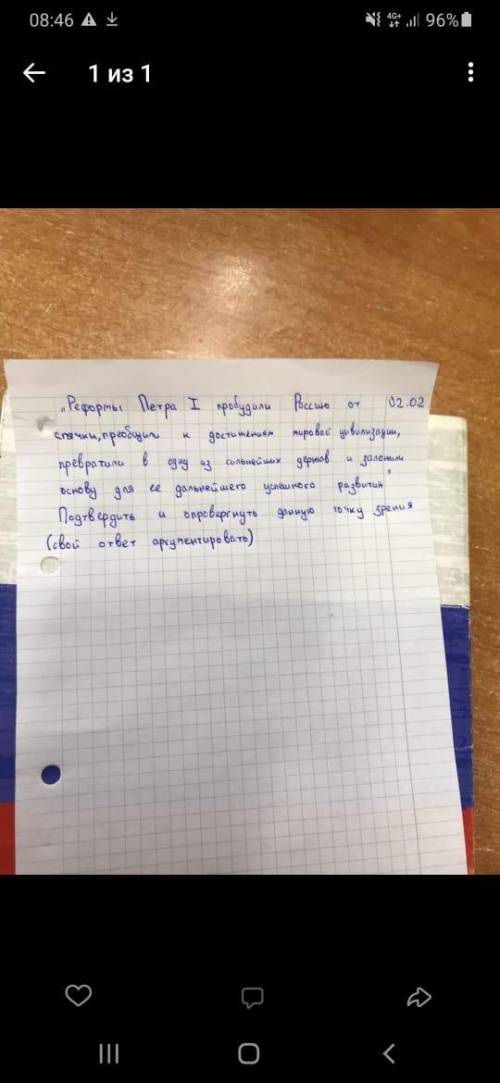 08:46 4G+ 96%
1 из 1
„Реформы Петра I пробудили Россию от 02.02
спячки, преобщил к достижениям мировой цивилизации,
превратили в одну из сильнейших держав и заложили
основу для ее дальнейшего успешного развития"
Подтвердить и опровергнуть данную точку зрения
(свой ответ аргументировать)